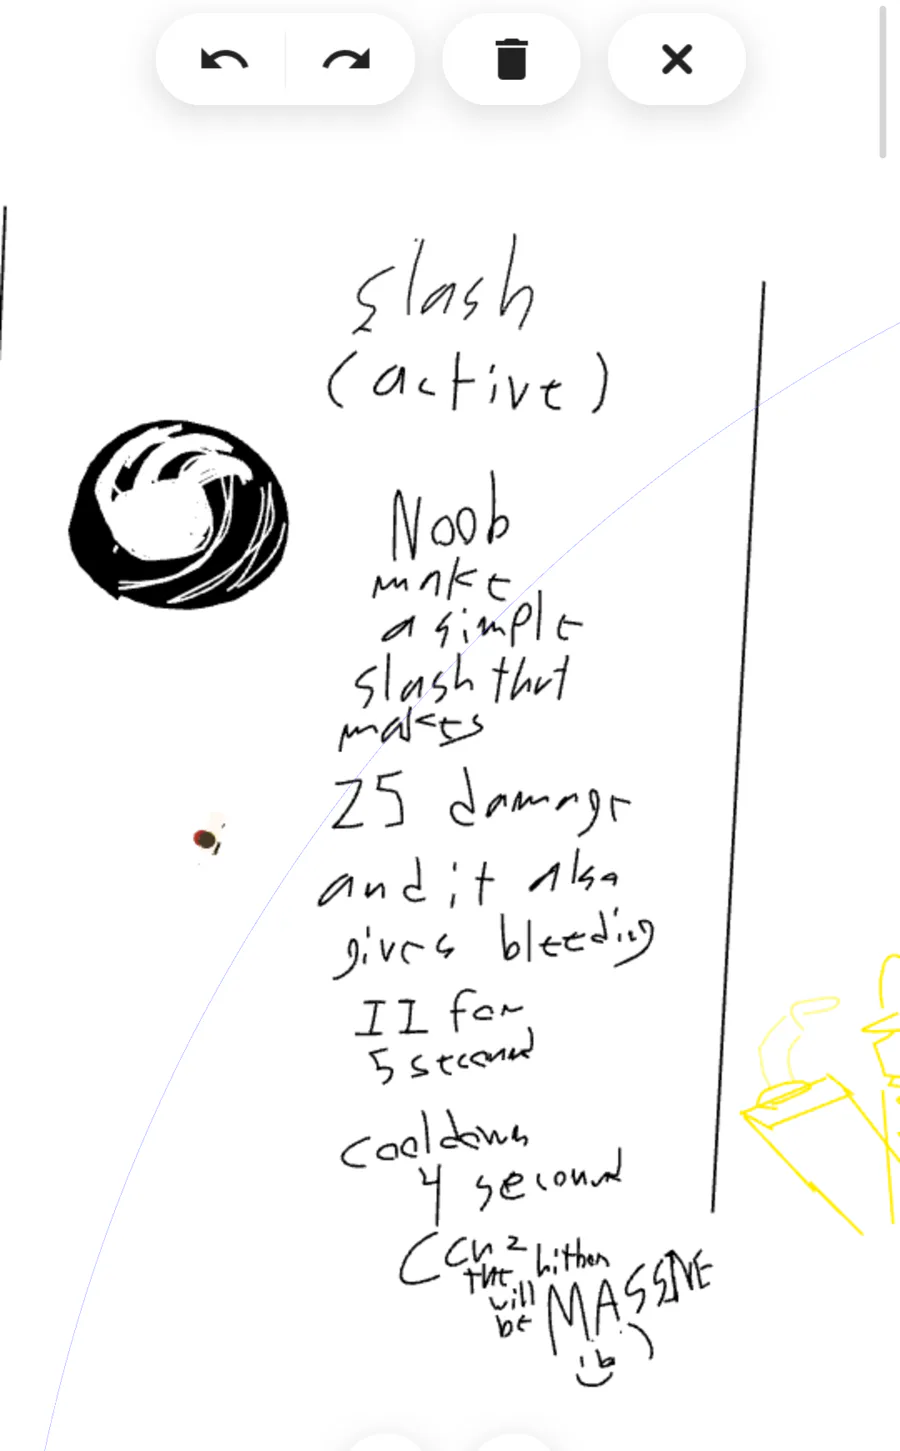 slash
(active)
Noob
make
a simple
slash that
makes
25 damage
and it also
gives bleeding
II for
5 second
cooldown
4 second
the hitbox
will MASSIVE
be